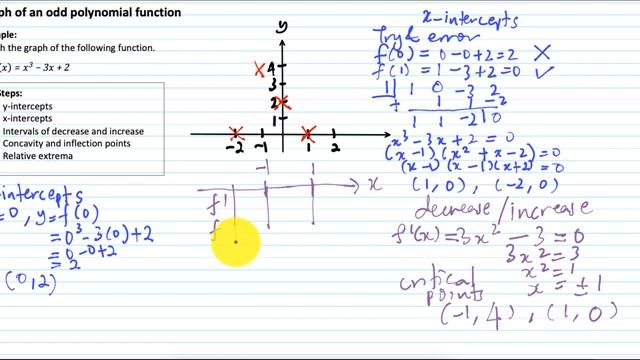 ph of an odd polynomial function
ple:
h the graph of the following function.
(x) = x³ − 3x + 2
Steps:
y-intercepts
x-intercepts
Intervals of decrease and increase
Concavity and inflection points
Relative extrema
intercepts
=0, y=f(0)
=0³-3(0)+2
=0-0+2
=2
(0,2)
y
4
3
2
1
-2 -1 1 2
-1 1
x
f'
f
x-intercepts
Try & error
f(0) = 0-0+2=2 ✗
f(1) = 1-3+2=0 ✓
1| 1 0 -3 2
+ 1 1 -2
1 1 -2 | 0
x³-3x+2=0
(x-1)(x²+x-2)=0
(x-1)(x-1)(x+2)=0
(1,0), (-2,0)
decrease/increase
f'(x)=3x²-3=0
3x²=3
x²=1
x=±1
critical points
(-1,4), (1,0)